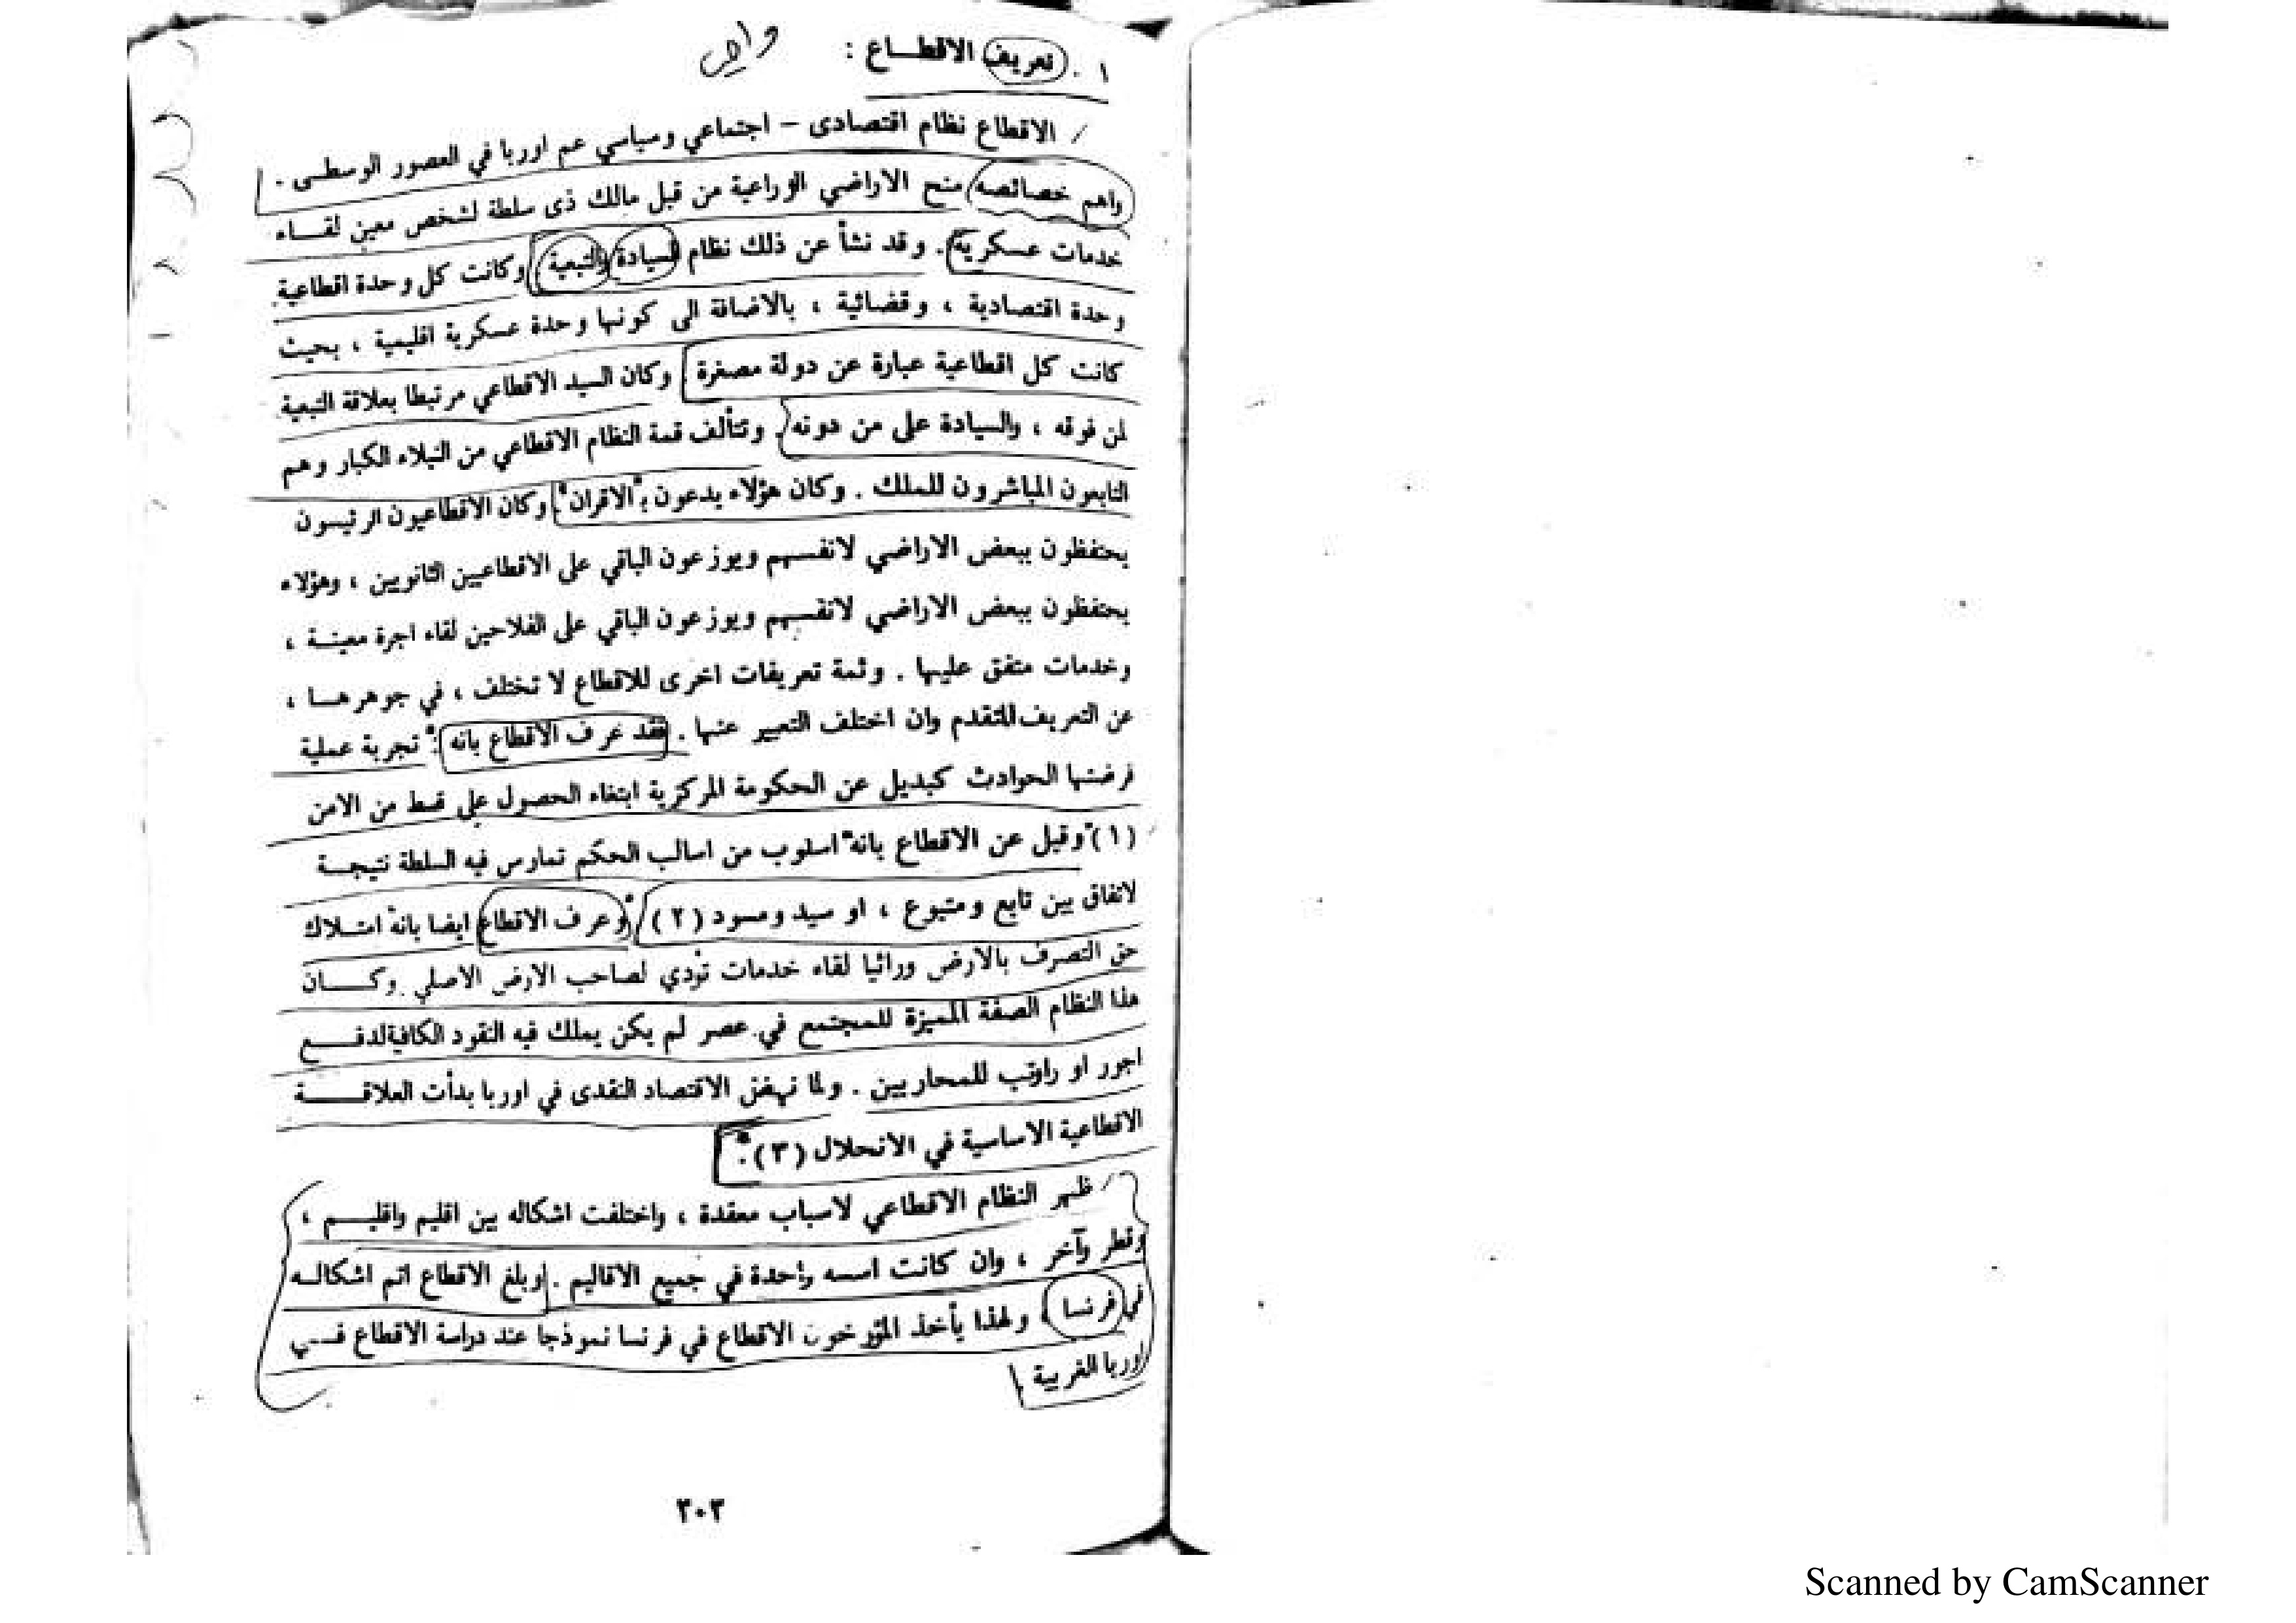 ١ . تعريف الاقطاع :
الاقطاع نظام اقتصادى - اجتماعي وسياسي عم اوربا في العصور الوسطى .
واهم خصائصه منح الاراضي الزراعية من قبل مالك ذى سلطة لشخص معين لقاء
خدمات عسكرية . وقد نشأ عن ذلك نظام السيادة والتبعية وكانت كل وحدة اقطاعية
وحدة اقتصادية ، وقضائية ، بالاضافة الى كونها وحدة عسكرية اقليمية ، بحيث
كانت كل اقطاعية عبارة عن دولة مصغرة . وكان السيد الاقطاعي مرتبطا بعلاقة التبعية
لمن فوقه ، والسيادة على من دونه . وتتألف قمة النظام الاقطاعي من النبلاء الكبار وهم
التابعون المباشرون للملك . وكان هؤلاء يدعون بـ"الاقران" وكان الاقطاعيون الرئيسون
يحتفظون ببعض الاراضي لانفسهم ويوزعون الباقي على الاقطاعيين الثانويين ، وهؤلاء
يحتفظون ببعض الاراضي لانفسهم ويوزعون الباقي على الفلاحين لقاء اجرة معينة ،
وخدمات متفق عليها . وثمة تعريفات اخرى للاقطاع لا تختلف ، في جوهرها ،
عن التعريف المتقدم وان اختلف التعبير عنها . فقد عرف الاقطاع بانه : "تجربة عملية
فرضتها الحوادث كبديل عن الحكومة المركزية ابتغاء الحصول على قسط من الامن
(١)" وقيل عن الاقطاع بانه "اسلوب من اسالب الحكم تمارس فيه السلطة نتيجة
لاتفاق بين تابع ومتبوع ، او سيد ومسود (٢)" وعرف الاقطاع ايضا بانه "امتلاك
حق التصرف بالارض وراثيا لقاء خدمات تؤدي لصاحب الارض الاصلي . وكان
هذا النظام الصفة المميزة للمجتمع في عصر لم يكن يملك فيه النقود الكافية لدفع
اجور او راوتب للمحاربين . ولما نهض الاقتصاد النقدى في اوربا بدأت العلاقة
الاقطاعية الاساسية في الانحلال (٣)" .
ظهر النظام الاقطاعي لاسباب معقدة ، واختلفت اشكاله بين اقليم واقليم ،
وقطر وآخر ، وان كانت اسسه واحدة في جميع الاقاليم . وبلغ الاقطاع اتم اشكاله
في فرنسا ولهذا يأخذ المؤرخون الاقطاع في فرنسا نموذجا عند دراسة الاقطاع في
اوربا الغربية
٢٠٣
Scanned by CamScanner